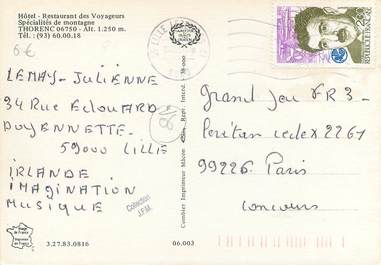 Hôtel - Restaurant des Voyageurs
Spécialités de montagne
THORENC 06750 - Alt. 1.250 m.
Tél. : (93) 60.00.18
6€
LEMAY-Julienne
34 Rue Edouard
DUYENNETTE.
59000 LILLE
IRLANDE
IMAGINATION
MUSIQUE
Collection
J.F.M.
3.27.83.0816
06.003
Combier Imprimeur Mâcon
Repr. Interd.
LILLE
Grand Jeu FR3-
Peritan cedex 2261
99226 Paris
Concours